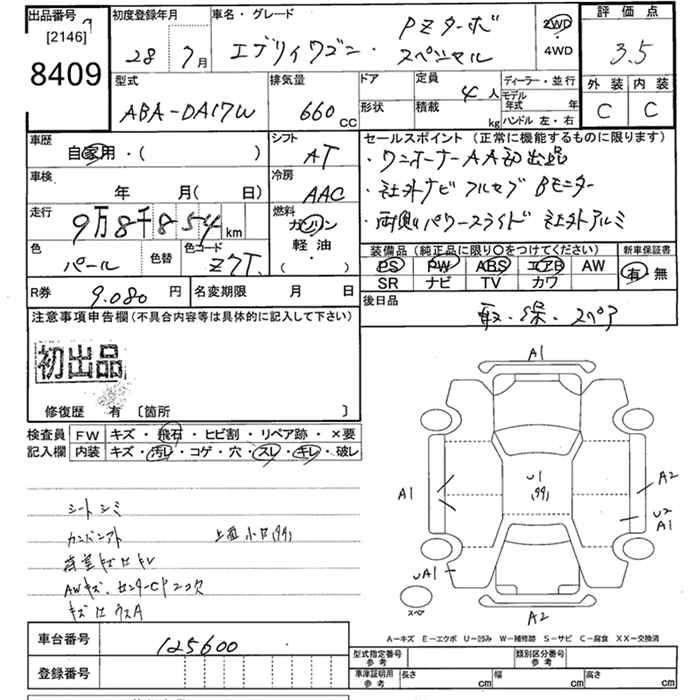 出品番号 [2146] 8409
初度登録年月 28 7月
車名・グレード エブリイワゴン・PZターボスペシャル
2WD 4WD
評価点 3.5
外装 内装
C C
型式 ABA-DA17W
排気量 660 CC
ドア
形状
定員 4人
積載 kg
ディーラー・並行
モデル年式 年
ハンドル 左・右
車歴 自家用・( )
シフト AT
セールスポイント (正常に機能するものに限ります)
・ワンオーナーAA初出品
・社外ナビ フルセグ Bモニター
・両側パワースライド 社外アルミ
車検 年 月( 日)
冷房 AAC
走行 9万8千854km
燃料 ガソリン 軽油・( )
色 パール 色替 色コード Z7T
装備品 (純正品に限り○をつけてください) 新車保証書
PS PW ABS エアB AW 有・無
SR ナビ TV カワ
R券 9.080円 名変期限 月 日
後日品 取・保・スペア
注意事項申告欄 (不具合内容等は具体的に記入して下さい)
初出品
修復歴 有 [箇所 ]
検査員 FW キズ・飛石・ヒビ割・リペア跡・×要
記入欄 内装 キズ・汚レ・コゲ・穴・スレ・キレ・破レ
シートシミ
上面小凹(99)
AWキズ
A1
U1
(99)
A1
A2
U2
A1
UA1
スペア
A2
A-キズ E-エクボ U-凹み W-補修跡 S-サビ C-腐食 XX-交換済
車台番号 125600
登録番号
型式指定番号 参考 類別区分番号 参考
車庫証明用 参考 長さ cm 幅 cm 高さ cm